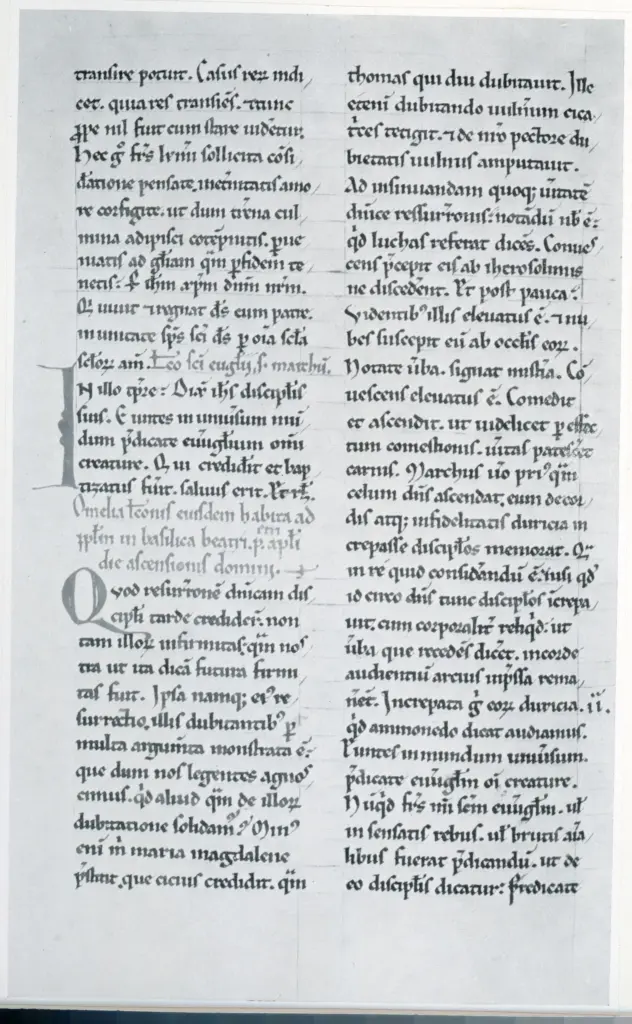 transire potuit. Casus reꝝ indi
cet. quia res transiēs. ⁊ tunc
ꝓpe nil fuit cum stare uidetur.
Hec gͦ frs̄ kr̄mi sollicita cōsi
dꝑatione pensate. incͦmutatis amo
re configite. ut dum tr̄ena cul
mina adipisci cōtēpnitis. ꝑue
niatis ad gl̄iam qͣm ꝑ fidem te
netis. ꝑ ih̄m xp̄m dn̄m nr̄m.
Q͛ uiuit ⁊ regnat ds̄ cum patre.
in unitate sp̄s sc̄i ds̄ ꝑ oīa scl̄a
scl̄oꝝ am̄. Lc̄o sc̄i eug̅lii. s. marchū.
IN illo tp̄re: Dix̄ ih̄s discipl̄is
suis. Euntes in uniūsum mū
dum p̄dicate eūuglium omī
creature. Qui credidit et bap
tizatus fu͛it. saluus erit. Et rl̄.
Omelia Leonis eiusdem habita ad
ppl̄m in basilica beati. p̄. apl̄i
die ascensionis domini.
Quod resurr̄one dn̄icam dis
cipl̄i tarde credider̄. non
tam illoꝝ infirmitas. qͣm nos
tra ut ita dicā futura firmi
tas fuit. Ipsa namq; eiꝰ re
surrectio. illis dubitantibꝰ ꝑ
multa argum̄ta monstrata ē.
que dum nos legentes agnos
cimus. qͥd aliud qͣm de illoꝝ
dubitatione solidamꝰ? Minꝰ
enī m̄ maria magdalene
p̄stitit. que cicius credidit. qͣm
thomas qui diu dubitauit. Ille
etenī dubitando uulnum cica
tͥces tetigit. ⁊ de nr̄o pectore du
bietatis uulnus amputauit.
Ad insinuandam quoq; ūitatē
dn̄ice resurr̄onis. notādū nb̄ ē.
qͥd luchas referat dicēs. Conues
cens p̄cepit eis ab iherosolimis
ne discedent. Et post pauca.
Videntibꝰ illis eleuatus ē. ⁊ nu
bes suscepit eū ab oc̄lis eoꝝ.
Notate ūba. signat mist̄ia. Cō
uescens eleuatus ē. Comedit
et ascendit. ut uidelicet ꝑ effec
tum comestionis. ūitas patescet
carnis. Marchus ūo priꝰ qͣm
celum dn̄s ascendat. eum de cor
dis atq; infidelitatis duricia in
crepasse discipl̄os memorat. Qͣ
in re quid considandū ē. nisi qd̄
id circo dn̄s tunc discipl̄os īcrepa
uit. cum corporalit̄ reliqͥd. ut
ūba que recedēs dicēt. in corde
audientiū arcius inp̄ssa rema
nēt. Increpata gͦ eoꝝ duricia.
qͥd ammonendo dicat audiamus.
Euntes in mundum uniūsum.
p̄dicate eūugl̄m oī creature.
Nūqͥd frs̄ mī scm̄ eūugl̄m. ul̄
in sensatis rebus. ul̄ brutis aīa
libus fuerat p̄dicandū. ut de
eo discipl̄is dicatur: Predicate